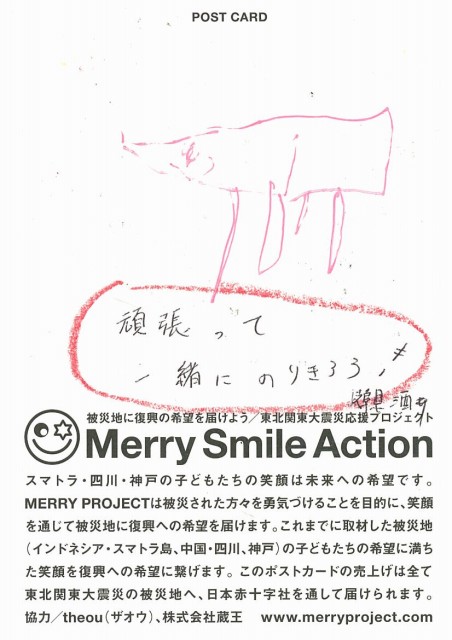 POST CARD
頑張って
一緒にのりきろう!
被災地に復興の希望を届けよう/東北関東大震災応援プロジェクト
Merry Smile Action
スマトラ・四川・神戸の子どもたちの笑顔は未来への希望です。
MERRY PROJECTは被災された方々を勇気づけることを目的に、笑顔
を通じて被災地に復興への希望を届けます。これまでに取材した被災地
(インドネシア・スマトラ島、中国・四川、神戸)の子どもたちの希望に満ち
た笑顔を復興への希望に繋げます。このポストカードの売上げは全て
東北関東大震災の被災地へ、日本赤十字社を通して届けられます。
協力/theou(ザオウ)、株式会社蔵王 www.merryproject.com